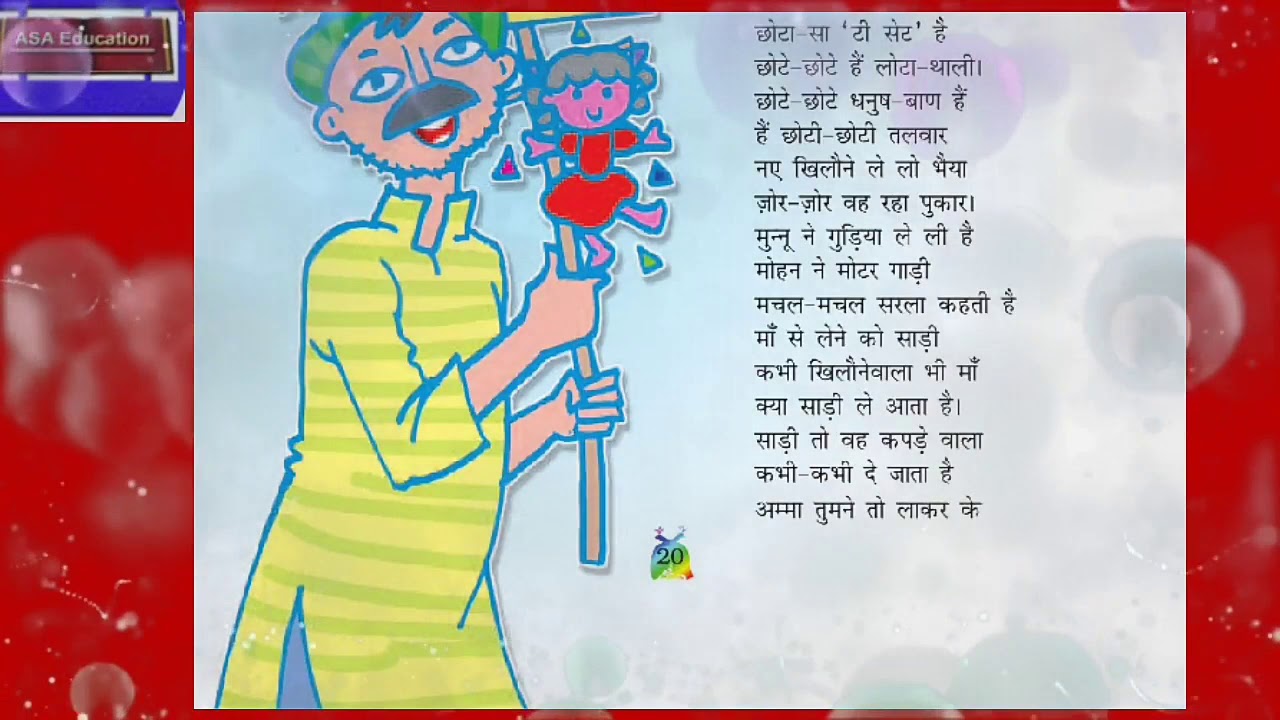 ASA Education
छोटा-सा ‘टी सेट’ है
छोटे-छोटे हैं लोटा-थाली।
छोटे-छोटे धनुष-बाण हैं
हैं छोटी-छोटी तलवार
नए खिलौने ले लो भैया
ज़ोर-ज़ोर वह रहा पुकार।
मुन्नू ने गुड़िया ले ली है
मोहन ने मोटर गाड़ी
मचल-मचल सरला कहती है
माँ से लेने को साड़ी
कभी खिलौनेवाला भी माँ
क्या साड़ी ले आता है।
साड़ी तो वह कपड़े वाला
कभी-कभी दे जाता है
अम्मा तुमने तो लाकर के
20